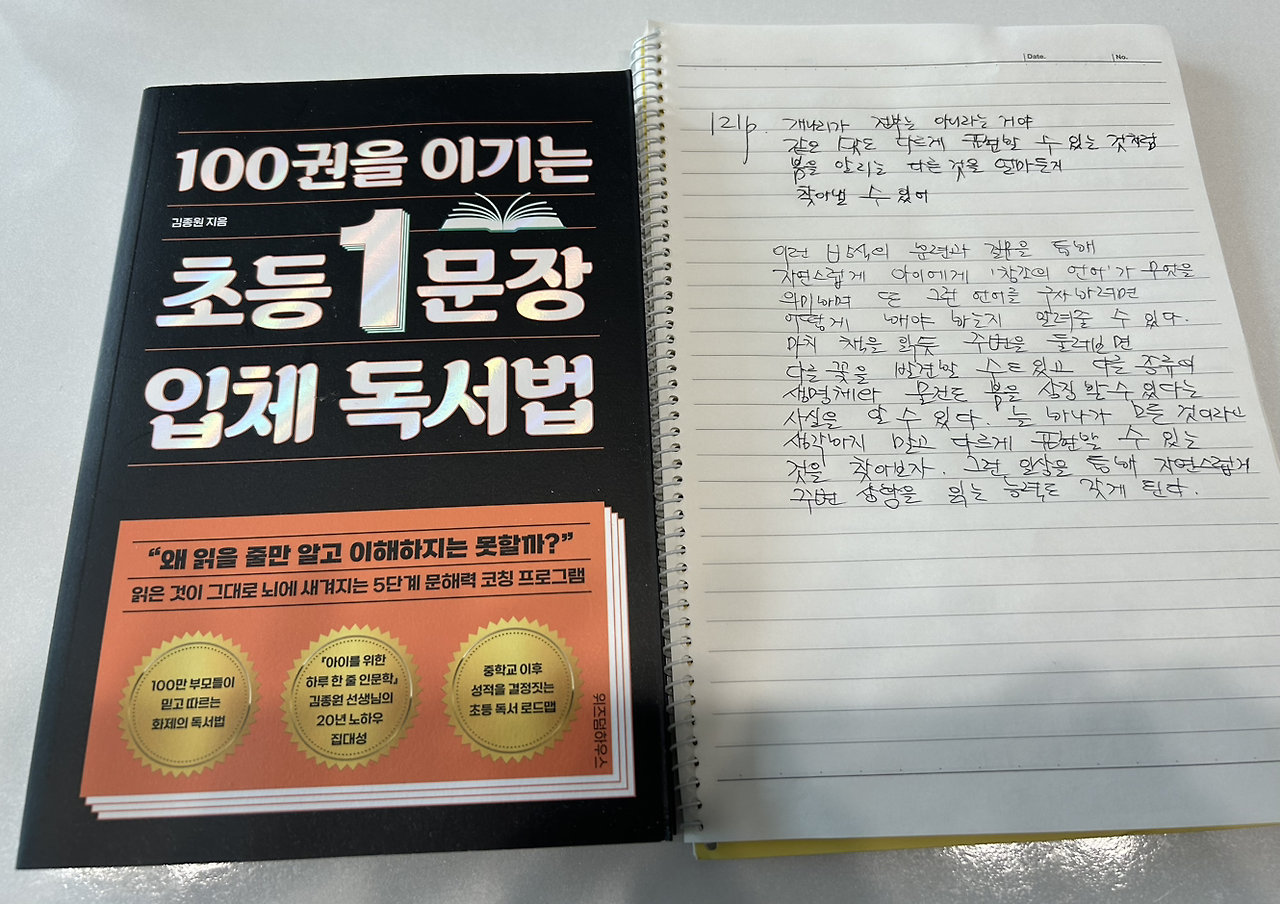 100권을 이기는
김종원 지음
초등 1문장
입체 독서법
“왜 읽을 줄만 알고 이해하지는 못할까?”
읽은 것이 그대로 뇌에 새겨지는 5단계 문해력 코칭 프로그램
100만 부모들이
믿고 따르는
화제의 독서법
『아이를 위한
하루 한 줄 인문학』
김종원 선생님의
20년 노하우
집대성
중학교 이후
성적을 결정짓는
초등 독서 로드맵
위즈덤하우스
Date.
No.
121p. 개나리가 전부는 아니라는 거야
같은 맛도 다르게 표현할 수 있는 것처럼
봄을 알리는 다른 것을 얼마든지
찾아낼 수 있어
이런 방식의 훈련과 질문을 통해
자연스럽게 아이에게 '창조의 언어'가 무엇을
의미하며 또 그런 언어를 구사하려면
어떻게 해야 하는지 알려줄 수 있다.
마치 책을 읽듯 주변을 둘러보면
다른 꽃을 발견할 수도 있고 다른 종류의
생명체와 물건도 봄을 상징할 수 있다는
사실을 알 수 있다. 늘 하나가 모든 것이라고
생각하지 말고 다르게 표현할 수 있는
것을 찾아보자. 그런 일상을 통해 자연스럽게
주변 상황을 읽는 능력도 갖게 된다.